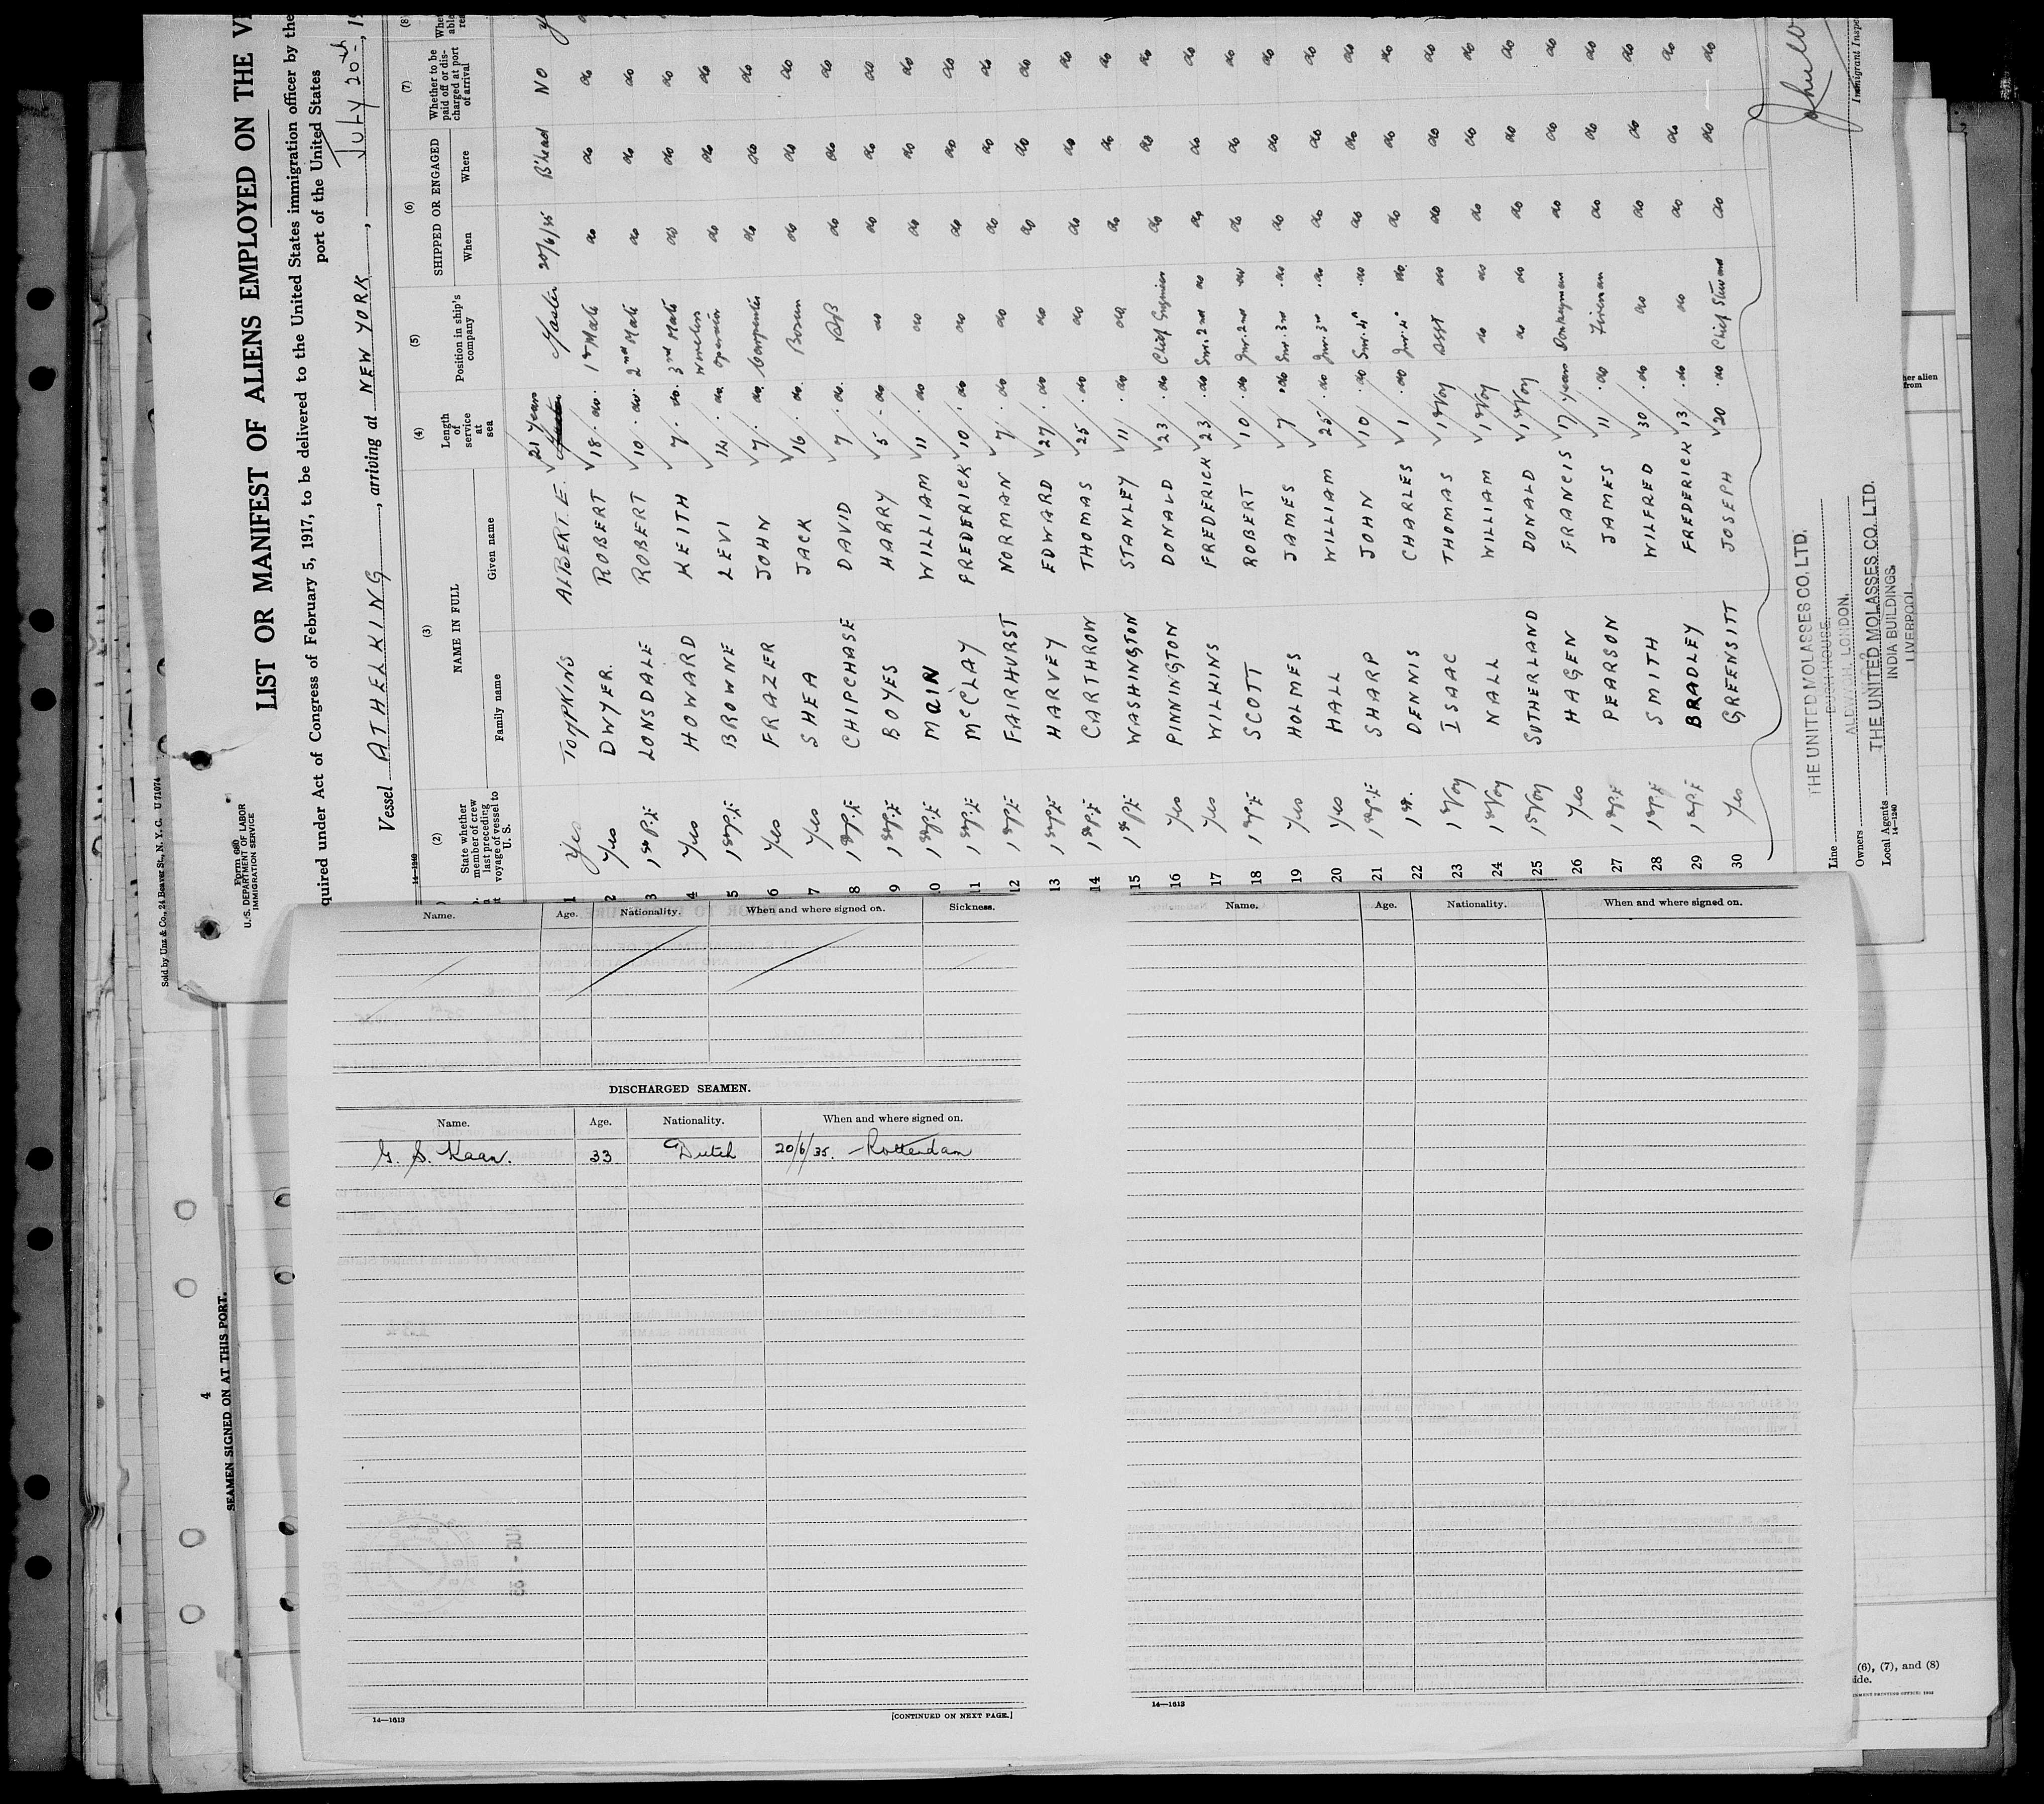 Sold by Unz & Co., 24 Beaver St., N. Y. C. U 71074
Form 680
U. S. DEPARTMENT OF LABOR
IMMIGRATION SERVICE
LIST OR MANIFEST OF ALIENS EMPLOYED ON THE
quired under Act of Congress of February 5, 1917, to be delivered to the United States immigration officer by the
port of the United States
Vessel ATHELKING, arriving at NEW YORK, JULY 20th, 1
14-1240
(2) (3) (4) (5) (6) (7) (8)
State whether member of crew last preceding voyage of vessel to U. S.
NAME IN FULL
Family name Given name
Length of service at sea
Position in ship's company
SHIPPED OR ENGAGED
When Where
Whether to be paid off or discharged at port of arrival
1 Yes TOMPKINS ALBERT. E. 21 Years Master 20/6/35 B'head NO
2 Yes DWYER. ROBERT 18 . do . 1st Mate do do do
3 1st P.F LONSDALE ROBERT 10 . do . 2nd Mate do do do
4 Yes HOWARD KEITH 7 . do . 3rd Mate do do do
5 1st P.F BROWNE LEVI 14 . do Wireless operator do do do
6 Yes FRAZER JOHN 7 . do Carpenter do do do
7 Yes SHEA JACK 16 . do . Bosun do do do
8 1st P.F CHIPCHASE DAVID 7 . do . AB do do do
9 1st P.F BOYES HARRY 5 . do do do do do
10 1st P.F MAIN WILLIAM 11 . do do do do do
11 1st P.F McCLAY FREDERICK 10 . do do do do do
12 1st P.F FAIRHURST NORMAN 7 . do do do do do
13 1st P.F HARVEY EDWARD 27 . do do do do do
14 1st P.F CARTHROW THOMAS 25 . do do do do do
15 1st P.F WASHINGTON STANLEY 11 . do do do do do
16 Yes PINNINGTON DONALD 23 . do Chief Engineer do do do
17 Yes WILKINS FREDERICK 23 . do Snr. 2nd do do do do
18 1st P.F SCOTT ROBERT 10 . do Jnr. 2nd do do do do
19 Yes HOLMES JAMES 7 . do Snr. 3rd do do do do
20 Yes HALL WILLIAM 25 . do Jnr. 3rd do do do do
21 1st P.F SHARP JOHN 10 . do Snr. 4th do do do do
22 1st. DENNIS CHARLES 1 . do Jnr. 4th do do do do
23 1st Voy ISAAC THOMAS 1st Voy Asst do do do do
24 1st Voy NALL WILLIAM 1st Voy do do do do do
25 1st Voy SUTHERLAND DONALD 1st Voy do do do do do
26 Yes HAGEN FRANCIS 17 years Donkeyman do do do
27 1st P.F PEARSON JAMES 11 . do Fireman do do do
28 1st P.F SMITH WILFRED 30 . do do do do do
29 1st P.F BRADLEY FREDERICK 13 . do do do do do
30 Yes GREENSITT JOSEPH 20 . do Chief Steward do do do
Line THE UNITED MOLASSES CO. LTD.
BUSH HOUSE,
Owners ALDWYCH, LONDON.
THE UNITED MOLASSES CO. LTD.
Local Agents INDIA BUILDINGS.
LIVERPOOL
14-1240
Immigrant Inspe
her alien
from
4
SEAMEN SIGNED ON AT THIS PORT.
Name. Age. Nationality. When and where signed on. Sickness.
DISCHARGED SEAMEN.
Name. Age. Nationality. When and where signed on.
G. S. Kaan. 33 Dutch 20/6/35. Rotterdam
14—1613 [CONTINUED ON NEXT PAGE.]
Name. Age. Nationality. When and where signed on.
14—1613
(6), (7), and (8)
ide.